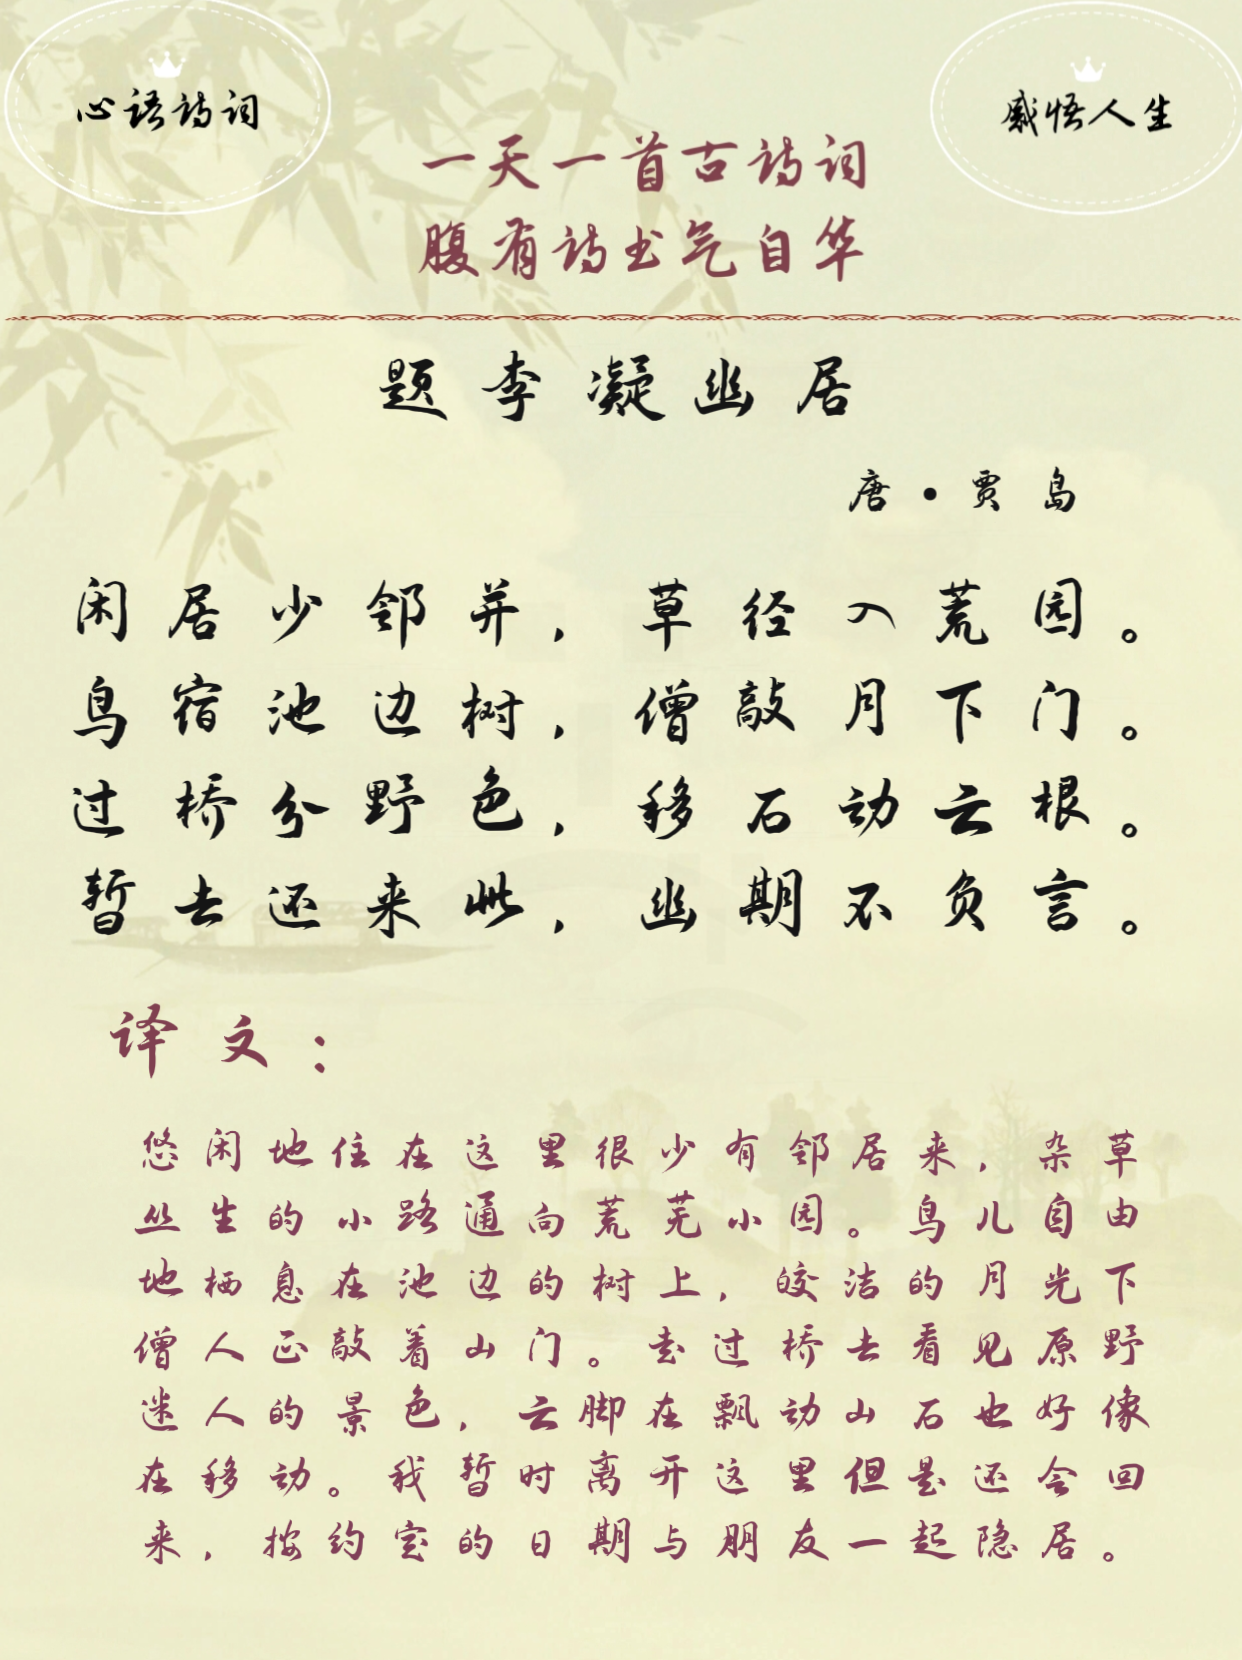 心语诗词
感悟人生
一天一首古诗词
腹有诗书气自华
题李凝幽居
唐·贾岛
闲居少邻并，草径入荒园。
鸟宿池边树，僧敲月下门。
过桥分野色，移石动云根。
暂去还来此，幽期不负言。
译文：
悠闲地住在这里很少有邻居来，杂草
丛生的小路通向荒芜小园。鸟儿自由
地栖息在池边的树上，皎洁的月光下
僧人正敲着山门。走过桥去看见原野
迷人的景色，云脚在飘动山石也好像
在移动。我暂时离开这里但是还会回
来，按约定的日期与朋友一起隐居。